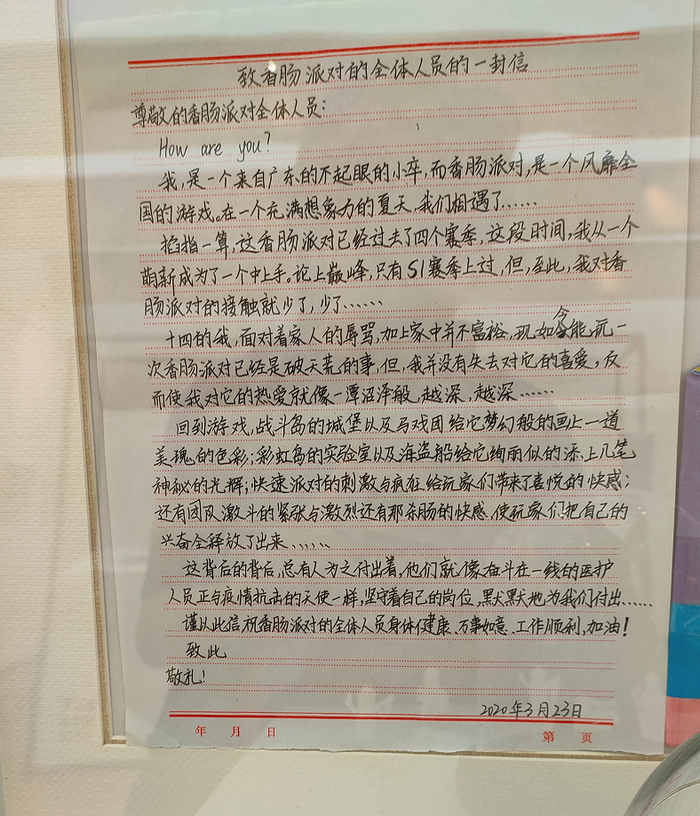 致香肠派对的全体人员的一封信
尊敬的香肠派对全体人员：
How are you?
我，是一个来自广东的不起眼的小卒，而香肠派对，是一个风靡全
国的游戏。在一个充满想象力的夏天，我们相遇了……
掐指一算，这香肠派对已经过去了四个赛季，这段时间，我从一个
萌新成为了一个中上手。论上巅峰，只有S1赛季上过，但，至此，我对香
肠派对的接触就少了，少了……
十四的我，面对着家人的辱骂，加上家中并不富裕，现如今能玩一
次香肠派对已经是破天荒的事，但，我并没有失去对它的喜爱，反
而使我对它的热爱就像一潭沼泽般，越深，越深……
回到游戏，战斗岛的城堡以及马戏团给它梦幻般的画上一道
美瑰的色彩；彩虹岛的实验室以及海盗船给它绚丽似的添上几笔
神秘的光辉；快速派对的刺激与疯狂给玩家们带来了喜悦的快感；
还有团队激斗的紧张与激烈还有那杀肠的快感，使玩家们把自己的
兴奋全释放了出来……
这背后的背后，总有人为之付出着，他们就像奋斗在一线的医护
人员正与疫情抗击的天使一样，坚守着自己的岗位，默默地为我们付出……
谨以此信祝香肠派对的全体人员身体健康、万事如意、工作顺利，加油！
致此
敬礼！
2020年3月23日
年 月 日 第 页